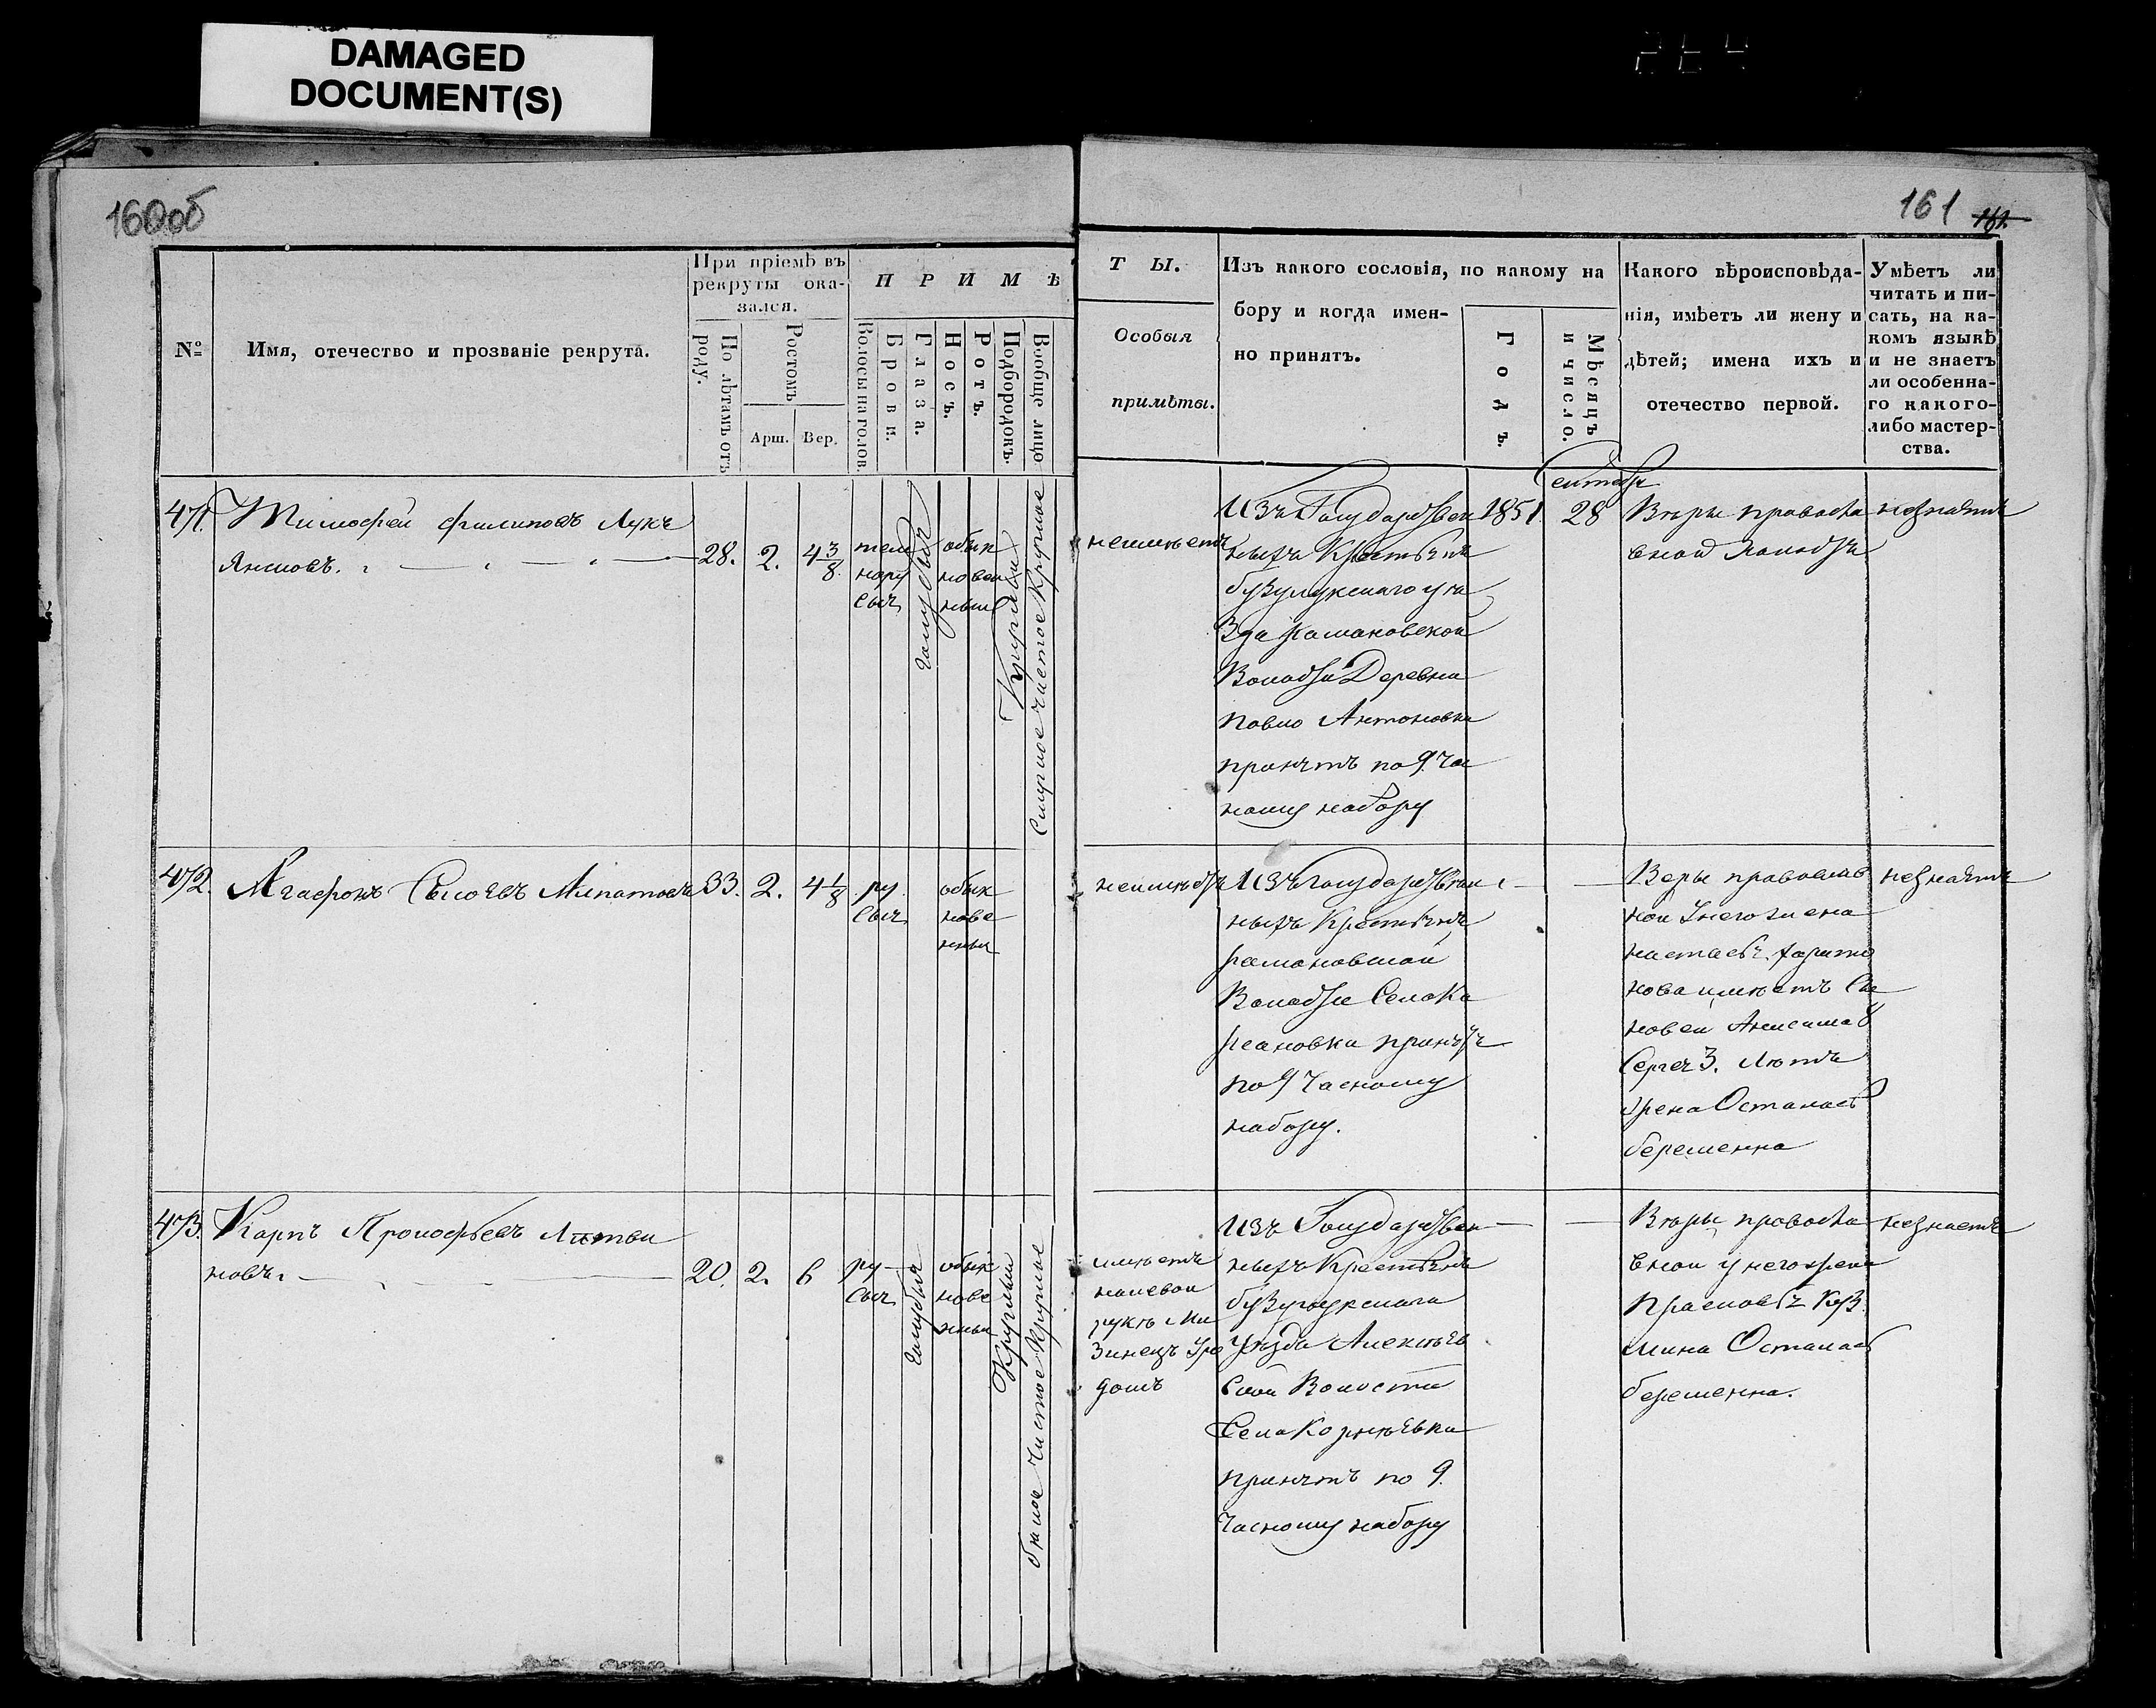 DAMAGED
DOCUMENT(S)
160об
161
№
Имя, отечество и прозваніе рекрута.
При пріемѣ въ
рекруты ока-
зался.
По лѣтамъ отъ
роду.
Ростомъ
Арш.
Вер.
П Р И М Ѣ
Волосы на голов.
Брови.
Глаза.
Носъ.
Ротъ.
Подбородокъ.
Вообще лицо
Т Ы.
Особыя
примѣты.
Изъ какого сословія, по какому на
бору и когда имен-
но принятъ.
Годъ.
Мѣсяцъ
и число.
Какого вѣроисповѣда-
нія, имѣетъ ли жену и
дѣтей; имена ихъ и
отечество первой.
Умѣетъ ли
читать и пи-
сать, на ка-
комъ языкѣ
и не знаетъ
ли особенна-
го какого-
либо мастер-
ства.
471. Тимофей Филиповъ Лукъ
яновъ.
28. 2. 4 3/8
тем
нору
сыя
голубыя
обык
новен
ныя
Круглый
Смуглое чистое Круглое
неимѣетъ
Изъ Государствен
ныхъ Крестьянъ
бузулукскаго уѣ
зда
Волости Деревни
Павло Антоновки
принятъ по 9. ча
ному набору
1851.
Сентябрь
28
Вѣры правосла
вной холостъ
незнаетъ
472. Агафонъ Сысоевъ Липатовъ
33. 2. 4 1/8
ру
сыя
обык
нове
нныя
неимѣетъ
Изъ Государствен
ныхъ Крестьянъ
Волости Села
принятъ
по 9 часному
набору.
Веры православ
ной у него жена
настасья харито
нова имѣетъ Сы
новей Анисима 8
Сергея 3. Лѣтъ
жена Осталась
беременна
незнаетъ
473. Карпъ Прокофьевъ Литви
новъ.
20. 2. 6
ру
сыя
голубыя
обык
нове
нныя
Круглый
бѣлое чистое Круглое
имѣетъ
на левой
рукѣ Ми
зинецъ Уро
домъ
Изъ Государствен
ныхъ Крестьянъ
бузулукскаго
Уѣзда Алексѣев
ской Волости
Села Корнѣевки
принятъ по 9.
часному набору
Вѣры правосла
вной у него жена
Прасковья Куз
мина Осталась
беременна.
незнаетъ